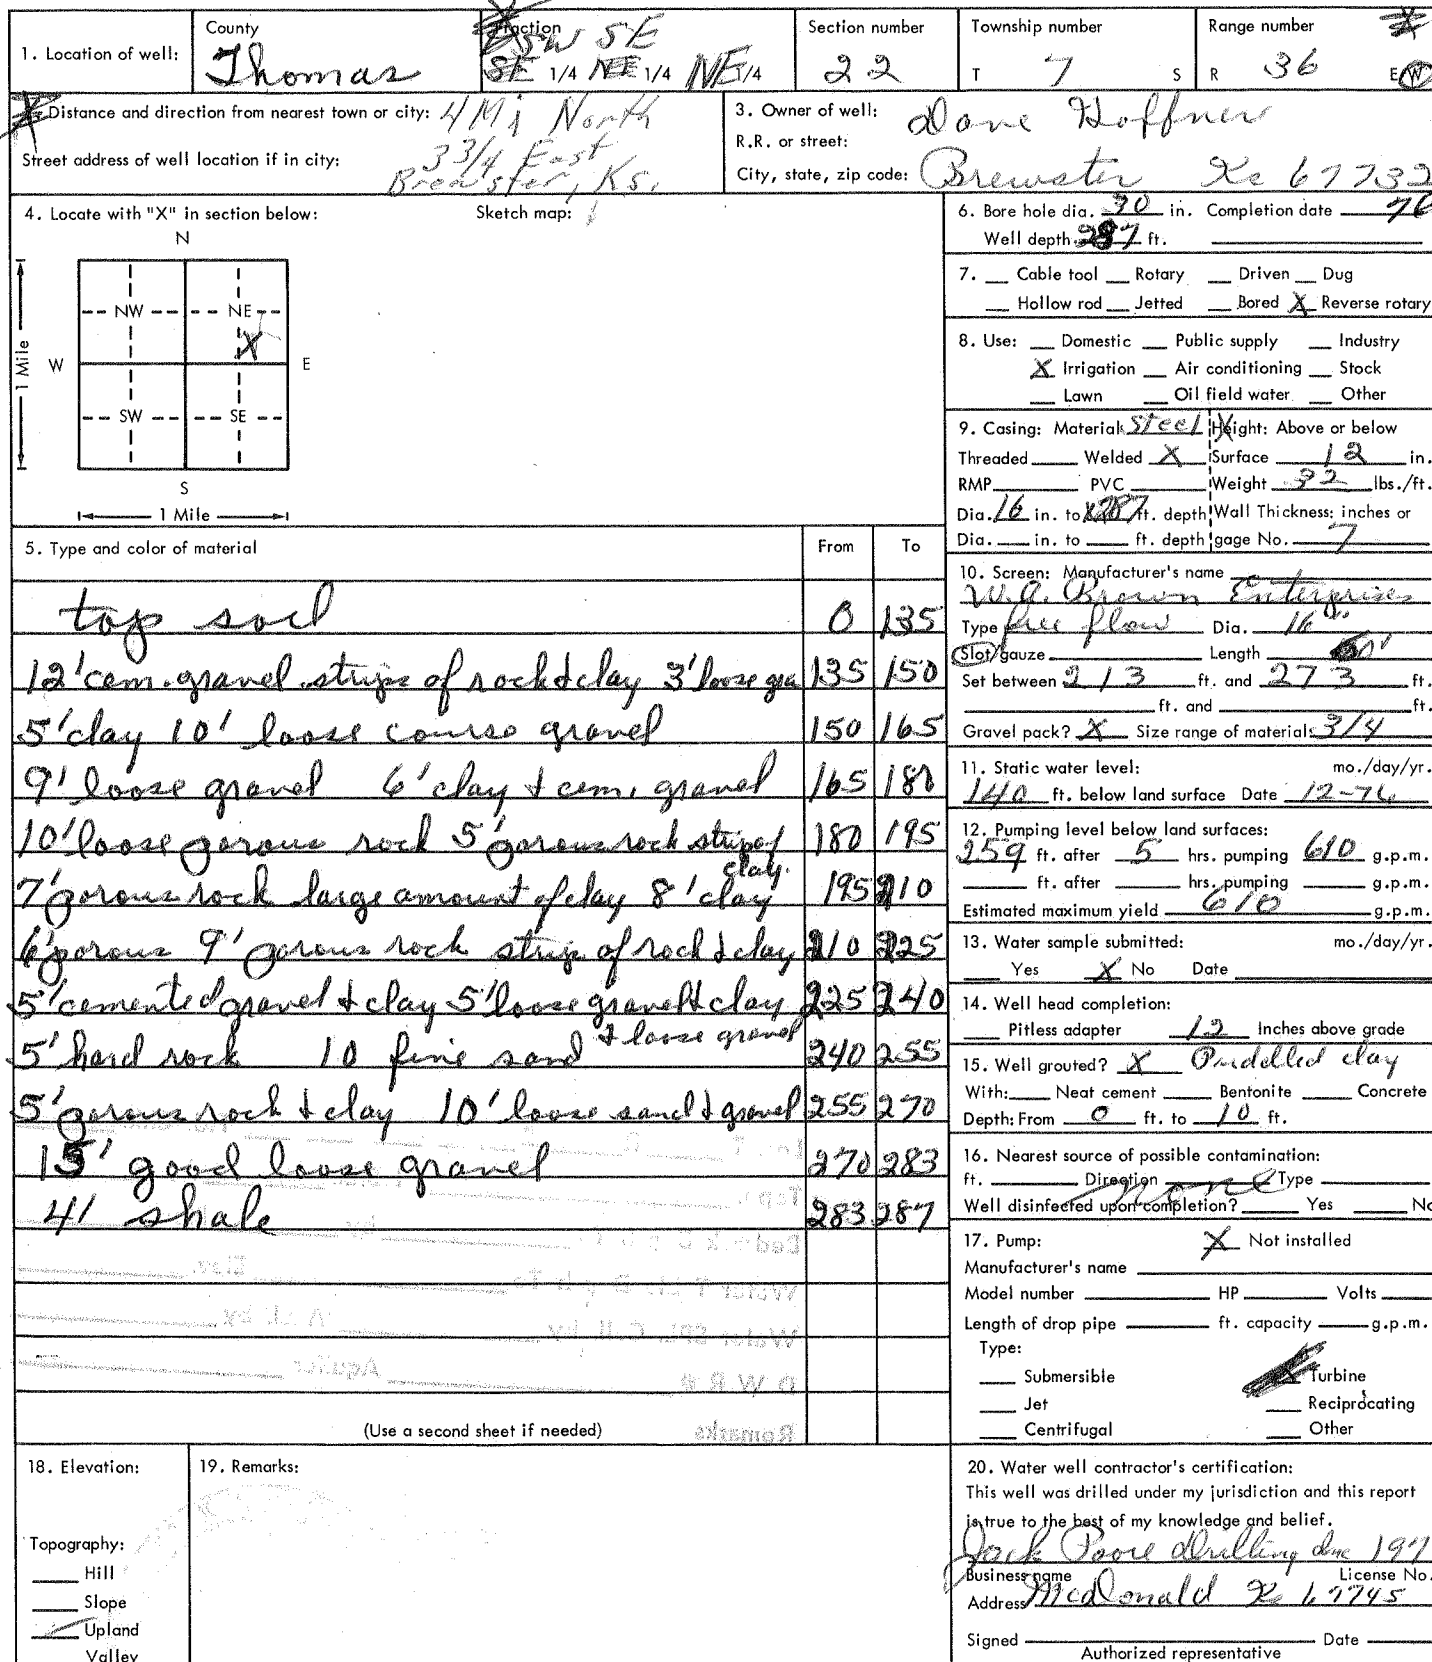 County Fraction Section number Township number Range number
SW SE
1. Location of well: Thomas SE 1/4 NE 1/4 NE 1/4 22 T 7 S R 36 E W
Distance and direction from nearest town or city: 4 Mi North
3 3/4 East
Street address of well location if in city:
Brewster, Ks.
3. Owner of well: Dave Hoffner
R.R. or street:
City, state, zip code: Brewster Ks 67732
4. Locate with "X" in section below: Sketch map:
N
NW NE
X
W E
1 Mile
SW SE
S
1 Mile
5. Type and color of material From To
top soil 0 135
12' cem. gravel strips of rock & clay 3' loose gra 135 150
5' clay 10' loose course gravel 150 165
9' loose gravel 6' clay & cem. gravel 165 180
10' loose porous rock 5' porous rock strip of clay 180 195
7' porous rock large amount of clay 8' clay 195 210
6' porous 9' porous rock strip of rock & clay 210 225
5' cemented gravel & clay 5' loose gravel & clay 225 240
5' hard rock 10 fine sand & loose gravel 240 255
5' porous rock & clay 10' loose sand & gravel 255 270
13' good loose gravel 270 283
4' shale 283 287
(Use a second sheet if needed)
6. Bore hole dia. 30 in. Completion date 76
Well depth 287 ft.
7. Cable tool Rotary Driven Dug
Hollow rod Jetted Bored X Reverse rotary
8. Use: Domestic Public supply Industry
X Irrigation Air conditioning Stock
Lawn Oil field water Other
9. Casing: Material: Steel Height: Above or below
Threaded Welded X Surface 12 in.
RMP PVC Weight 32 lbs./ft.
Dia. 16 in. to 287 ft. depth Wall Thickness: inches or
Dia. in. to ft. depth gage No. 7
10. Screen: Manufacturer's name
W.A. Brown Enterprises
Type free flow Dia. 16"
Slot/gauze Length 60'
Set between 213 ft. and 273 ft.
ft. and ft.
Gravel pack? X Size range of material: 3/4
11. Static water level: mo./day/yr.
140 ft. below land surface Date 12-76
12. Pumping level below land surfaces:
259 ft. after 5 hrs. pumping 610 g.p.m.
ft. after hrs. pumping g.p.m.
Estimated maximum yield 610 g.p.m.
13. Water sample submitted: mo./day/yr.
Yes X No Date
14. Well head completion:
Pitless adapter 12 Inches above grade
15. Well grouted? X Puddled clay
With: Neat cement Bentonite Concrete
Depth: From 0 ft. to 10 ft.
16. Nearest source of possible contamination:
ft. Direction none Type
Well disinfected upon completion? Yes No
17. Pump: X Not installed
Manufacturer's name
Model number HP Volts
Length of drop pipe ft. capacity g.p.m.
Type:
Submersible Turbine
Jet Reciprocating
Centrifugal Other
18. Elevation:
Topography:
Hill
Slope
Upland
Valley
19. Remarks:
20. Water well contractor's certification:
This well was drilled under my jurisdiction and this report
is true to the best of my knowledge and belief.
Jack Poore Drilling Inc 197
Business name License No.
Address McDonald Ks 67745
Signed Date
Authorized representative